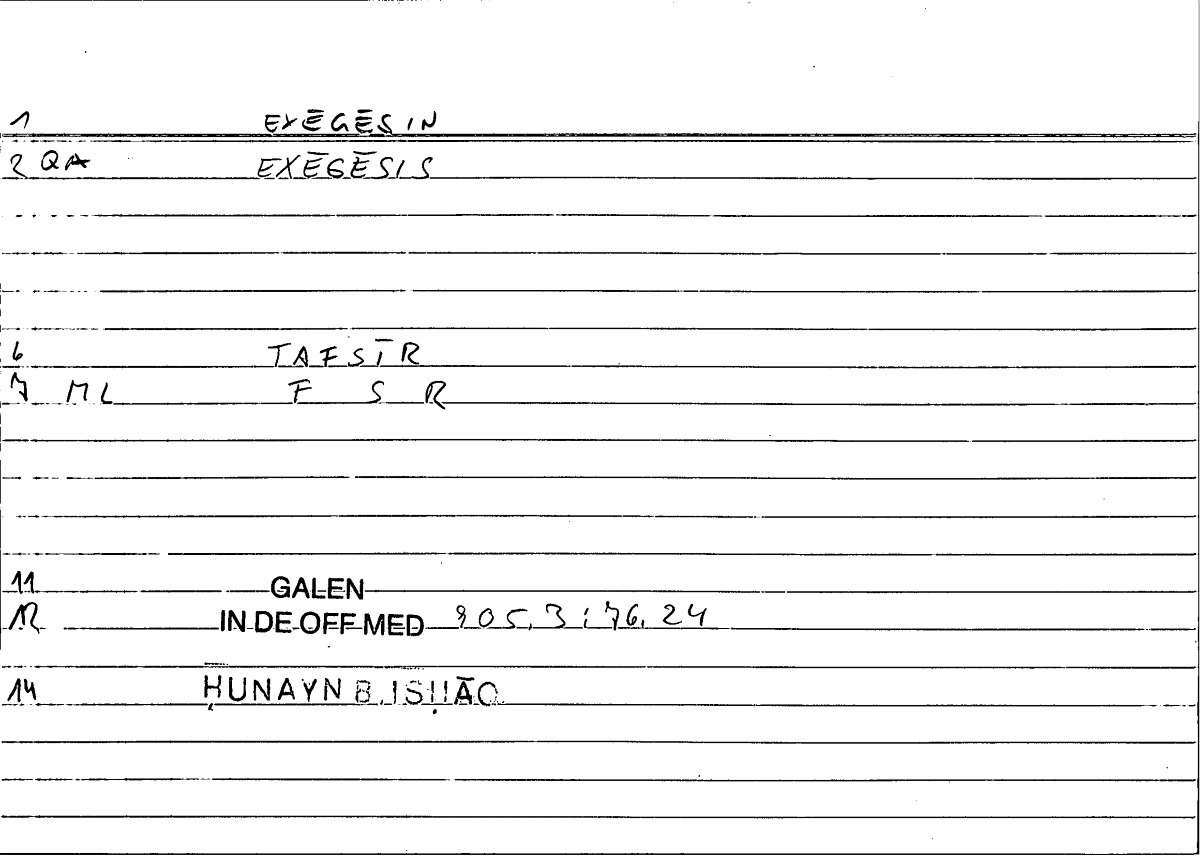 1 EXĒGĒSIN
2 QA EXĒGĒSIS
6 TAFSĪR
7 ML F S R
11 GALEN
12 IN DE OFF MED 905,3 ; 76,24
14 ḤUNAYN B. ISḤĀQ